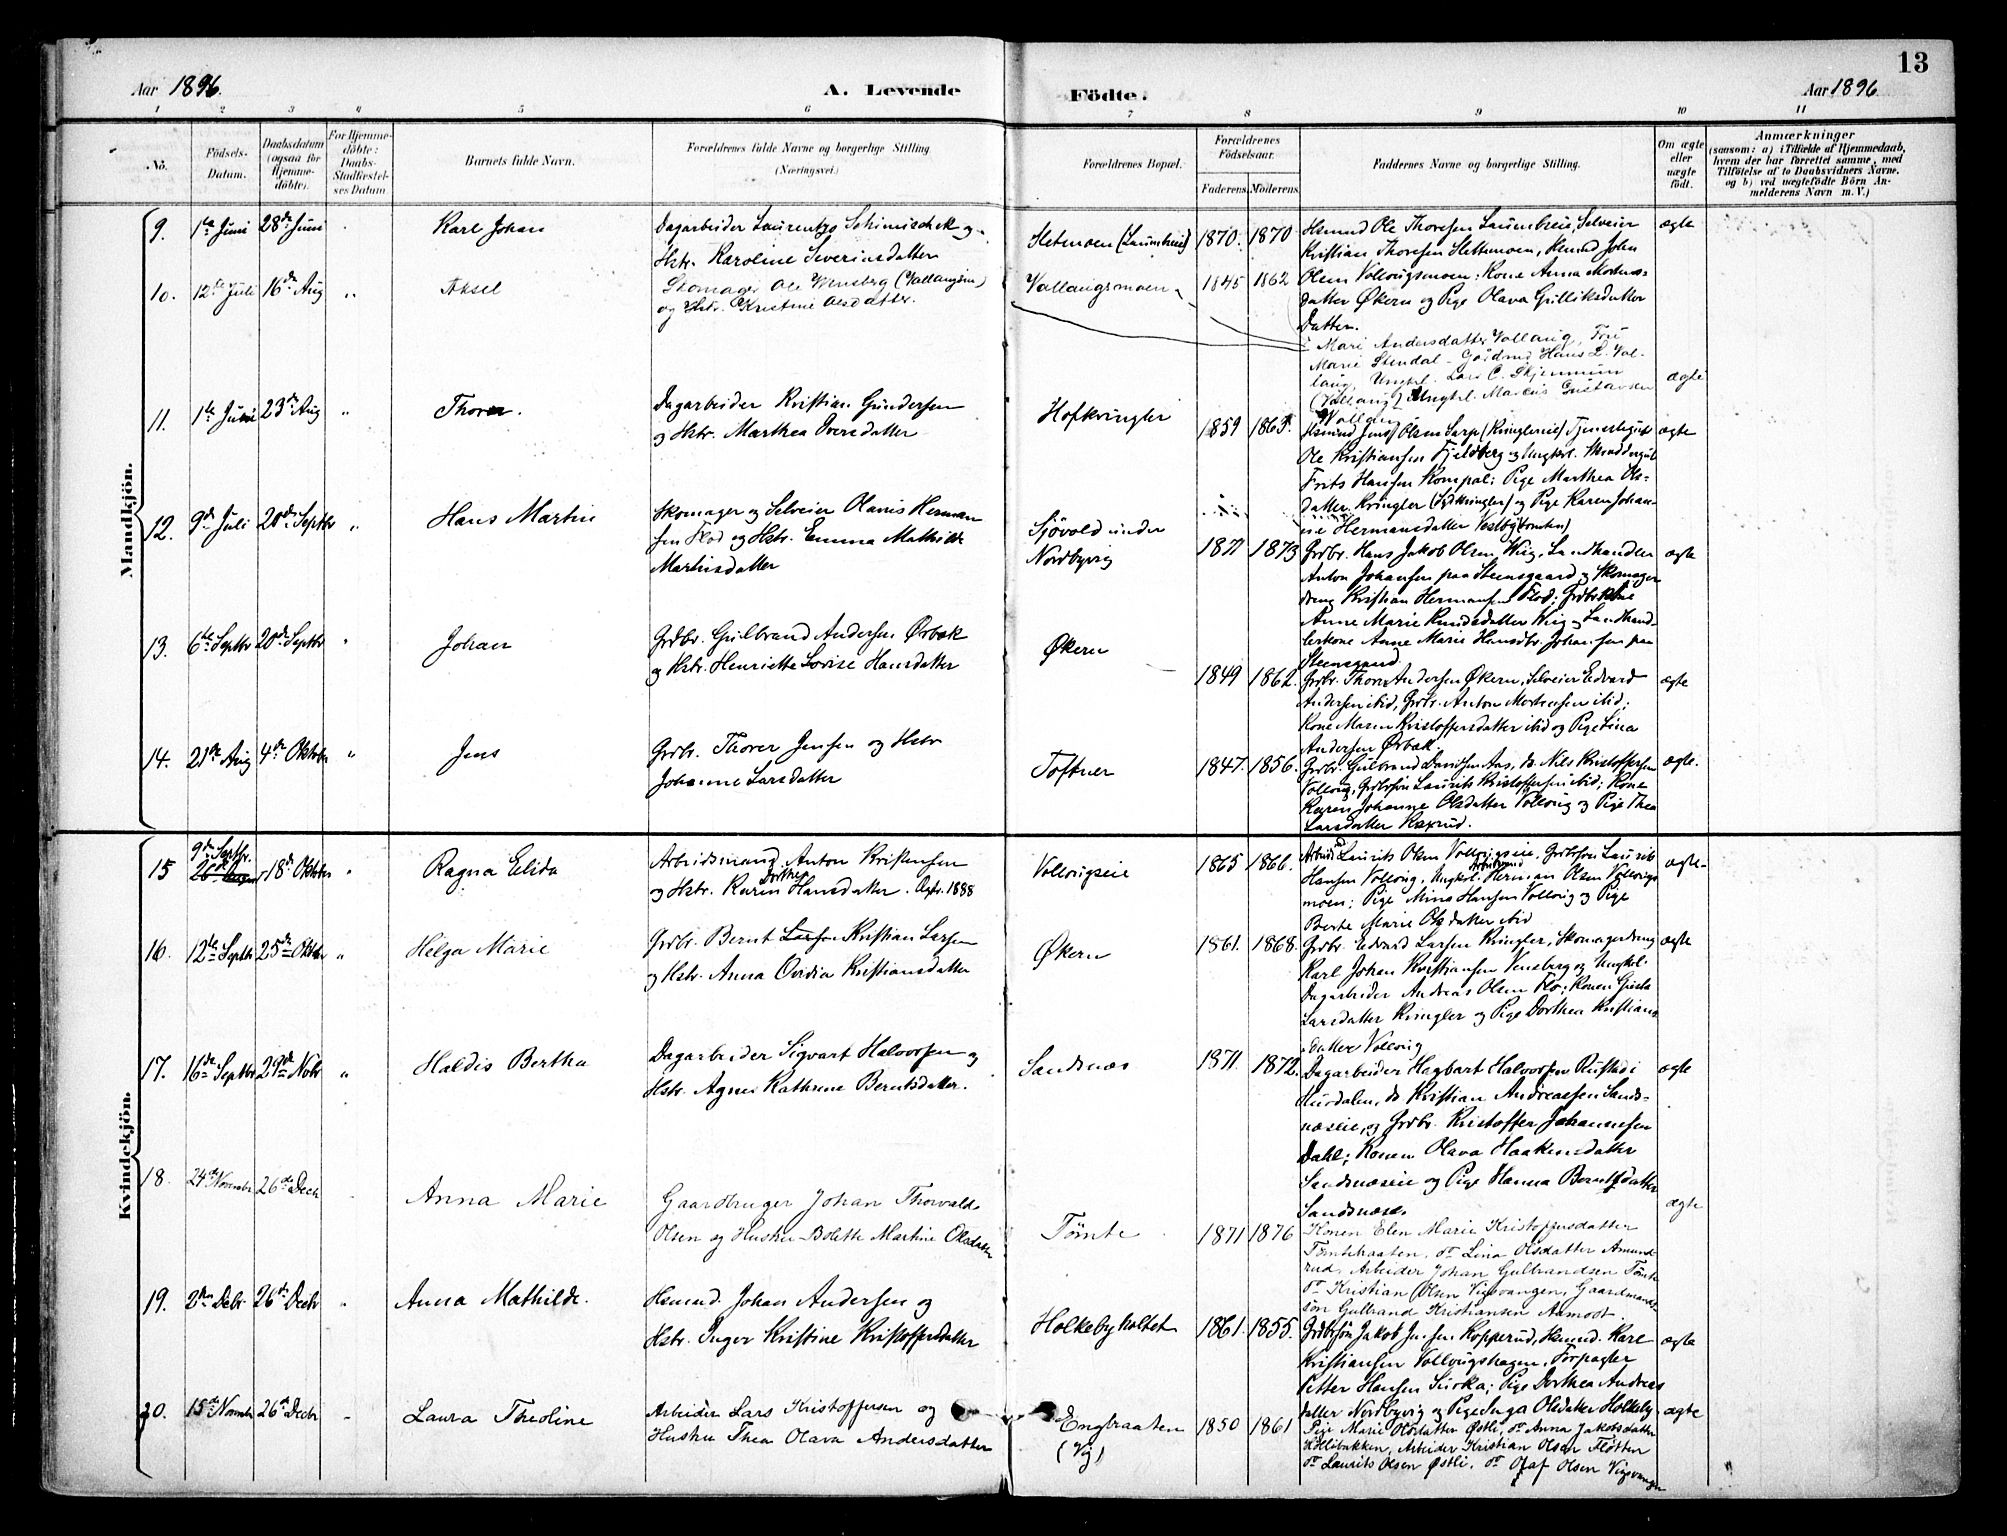 13
Aar 1896.
A. Levende
Födte.
Aar 1896
1 2 3 4 5 6 7 8 9 10 11
No.
Födsels-Datum.
Daabsdatum (ogsaa for Hjemmedöbte).
For Hjemmedöbte: Daabs-Stadfæstelses Datum.
Barnets fulde Navn.
Forældrenes fulde Navne og borgerlige Stilling
(Næringsvei.)
Forældrenes Bopæl.
Forældrenes Födselsaar.
Faderens. Moderens.
Faddernes Navne og borgerlige Stilling.
Om ægte eller uægte födt.
Anmærkninger
(saasom: a) i Tilfælde af Hjemmedaab, hvem der har forrettet samme, med Tilföielse af to Daabsvidners Navne. og b) ved uægtefödte Börn Anmelderens Navn m. V.)
Mandkjön.
9. 1ste Juni 28de Juni Karl Johan
Dagarbeider Laurentzo Schimischek og
Hstr. Karoline Severinsdatter
Sletmoen (Laumheie) 1870. 1870
Hsmnd Ole Thoresen Laumheie, Selveier
Kristian Thoresen Slettemoen, Hsmnd John
Olsen Vollougsmoen; Kone Anna Mortens-
datter Økern og Pige Olava Gulliksdatter
Datten.
ægte
10. 12te Juli 16de Aug " Aksel
Skomager Ole Wensberg (Vallangsm)
og Hstr. Kristine Olsdatter.
Vallangsmoen 1845 1862
Mari Andersdatter Vollaug,
Marie Stendal - Gårdmd Hans L. Vol-
laug, Ungkl. Lars C. Skjennum
(Vollaug) Ungkl. Marcus Gustavsen
Vollaug
ægte
11. 1ste Juni 23de Aug " Thorer.
Dagarbeider Kristian Gundersen
og Hstr. Marthea Iversdatter
Hofkringler 1859 1863.
Hsmnd Jens Olsen Sarp (Kringlereie) Tjenestegut
Ole Kristiansen Fjeldberg og Ungkrl. Skræddergut
Frits Hansen Kompal; Pige Marthea Ols-
datter Kringler (Sydkringler) og Pige Karen Johan-
ne Hermansdatter Vestby
ægte
12. 9de Juli 20de Septbr " Hans Martin
Skomager og Selveier Olavis Herman
sen Flod og Hstr. Emma Mathilde
Martinsdatter
Sjøvold under
Nordbyvig
1871 1873
Grdbr. Hans Jakob Olsen Wiig, Landhandler
Anton Johansen paa Steensgaard og Skomager
dreng Kristian Hermansen Flod; Grdbrkone
Anne Marie Knudsdatter Wiig og Landhand-
lerkone Anne Marie Hansdtr. Johansen paa
Steensgaard
ægte
13. 6te Septbr 20de Septbr " Johan
Grdbr. Gulbrand Andersen Ørbæk
og Hstr. Henriette Lovise Hansdatter
Økern 1849 1862.
Grdbr. Thore Andersen Økern, Selveier Edvard
Andersen ibid, Grdbr. Anton Mortensen ibid;
Kone Maren Kristoffersdatter ibid og Pige Lina
Andersen Ørbæk.
ægte
14. 21de Aug 4de Oktober " Jens
Grdbr. Thorer Jensen og Hstr
Johanne Larsdatter
Toftner 1847. 1856.
Grdbr. Gulbrand Davidsen Aas, do Nils Kristoffersen
Vollaug, Grdbrsøn Laurits Kristoffersen ibid; Kone
Karen Johanne Olsdatter Vollaug og Pige Thea
Larsdatter Raxrud.
ægte.
Kvindekjön.
15 9de Septbr. 18de Oktober " Ragna Elida
Arbeidsmand Anton Kristensen
og Hstr. Karen Dorthea Hansdatter. Ægtv. 1888
Vollougseie 1865 1866.
Arbeid Laurits Olsen Vollougseie, Grdbrsøn Laurits
Hansen Vollaug, Ungkrl. Arbmand Herman Olsen Vollougs
moen; Pige Mina Hansen Vollaug og Pige
Berte Marie Olsdatter ibid
ægte
16. 12te Septbr 25de Oktbr " Helga Marie
Grdbr. Bernt Larsen Kristian Larsen
og Hstr. Anna Ovidia Kristiansdatter
Økern 1861. 1868.
Grdbr. Edvard Larsen Kringler, Skomagerdreng
Karl Johan Kristiansen Vensberg og Ungkrl.
Dagarbeider Andreas Olsen Flo; Konen Gusta
Larsdatter Kringler og Pige Dorthea Kristians
datter Vollaug
ægte
17. 16de Septbr 29de Novbr " Haldis Bertha
Dagarbeider Sigvart Halvorsen og
Hstr. Agnes Kathrine Berntsdatter.
Sandsnæs 1871. 1872.
Dagarbeider Hagbart Halvorsen Rustad i
Hurdalen, do Kristian Andreassen Sands-
næseie, og Grdbr. Kristoffer Johannesen
Dahl; Konen Olava Haakensdatter
Sandsnæseie og Pige Hanna Berntsdatter
Sandsnæs.
ægte
18. 24de November 26de Decb Anna Marie
Gaardbruger Johan Thorvald
Olsen og Hustru Bolette Martine Olsdatter
Tømte 1871 1876
Konen Elen Marie Kristoffersdatter
Tømtebraaten, do Lina Olsdatter Amund
rud, Arbeider Johan Gulbrandsen Tømte
do Kristian Olsen Vigsvangen, Gaardmands
søn Gulbrand Kristiansen Aamodt
ægte
19. 2den Debr 26de Decbr " Anna Mathilde.
Hsmnd. Johan Andersen og
Hstr. Inger Kristine Kristoffersdatter
Holkebyholtet 1861. 1855.
Grdbrsøn Jakob Jensen Kopperud, Hsmnd. Karl
Kristiansen Vollougshagen, Forpagter
Petter Hansen Suoka; Pige Dorthea Andreas
datter Nordbyvig og Pige Inga Olsdatter Holkeby
ægte
20. 15de Novmbr 26de Decbr Laura Theoline
Arbeider Lars Kristoffersen og
Hustru Thea Olava Andersdatter
Engbraaten
(Vig)
1850 1861
Pige Marie Olsdatter Østli, do Anna Jakobsdatter
Holtibakken, Arbeider Kristian Olsen Fløtten
do Laurits Olsen Østli, do Olaf Olsen Vigsvangen
ægte